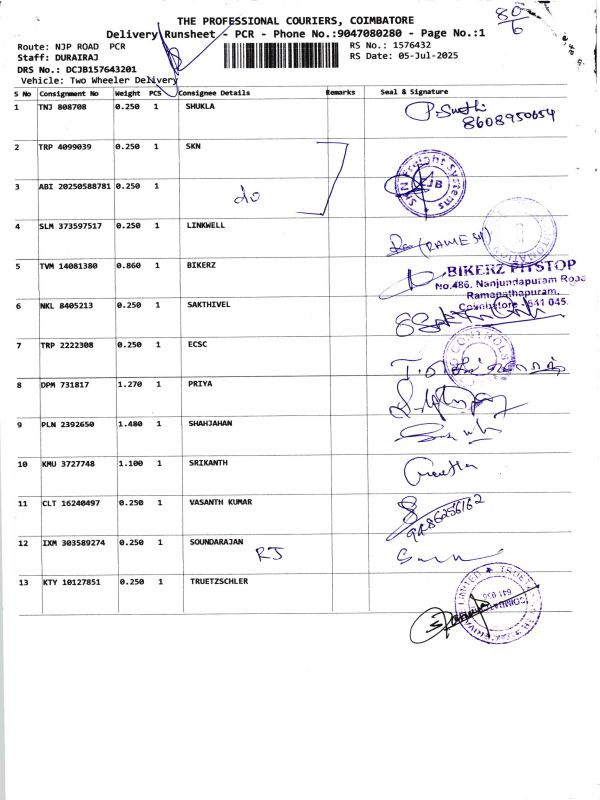 80
6
THE PROFESSIONAL COURIERS, COIMBATORE
Delivery Runsheet - PCR - Phone No.:9047080280 - Page No.:1
Route: NJP ROAD PCR
RS No.: 1576432
Staff: DURAIRAJ
RS Date: 05-Jul-2025
DRS No.: DCJB157643201
Vehicle: Two Wheeler Delivery
S No Consignment No Weight PCS Consignee Details Remarks Seal & Signature
1 TNJ 808708 0.250 1 SHUKLA
8608950654
2 TRP 4099039 0.250 1 SKN
SKN Freight Systems
CJB
3 ABI 20250588781 0.250 1 do
4 SLM 373597517 0.250 1 LINKWELL (RAMESH)
5 TVM 14081380 0.860 1 BIKERZ
BIKERZ PITSTOP
No.486, Nanjundapuram Road
Ramanathapuram,
Coimbatore - 641 045.
6 NKL 8405213 0.250 1 SAKTHIVEL
7 TRP 2222308 0.250 1 ECSC
CONTROLS
8 DPM 731817 1.270 1 PRIYA
9 PLN 2392650 1.480 1 SHAHJAHAN
10 KMU 3727748 1.100 1 SRIKANTH
11 CLT 16240497 0.250 1 VASANTH KUMAR
9486256162
12 IXM 303589274 0.250 1 SOUNDARAJAN
RJ
13 KTY 10127851 0.250 1 TRUETZSCHLER